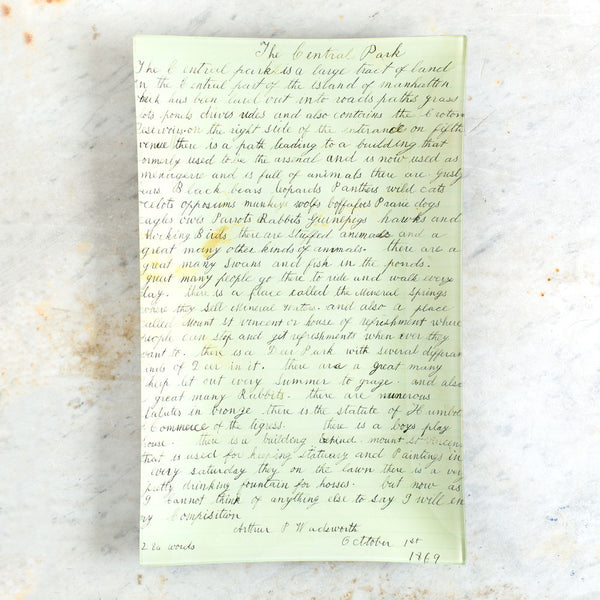 The Central Park
The Central park is a large tract of land
in the Central part of the island of manhattan
which has been laid out into roads paths grass
lots ponds drives rides and also contains the Croton
Reservoir on the right side of the entrance on fifth
venue there is a path leading to a building that
ormerly used to be the arsenal and is now used as
menagerie and is full of animals there are grisly
ears Black bears leopards Panthers wild cats
ocelots opposums munkeys wolfs boffalos Prarie dogs
eagles owls Parrots Rabbits Guineipigs hawks and
Mocking Birds there are stuffed animals and a
great many other kinds of animals. there are a
great many swans and fish in the ponds.
great many people go there to ride and walk every
day. there is a place called the Mineral Springs
where they sell Mineral Water. and also a place
called Mount St vincent or house of refreshment where
people can stop and get refreshments when ever they
want to. there is a Deer Park with several differan
inds of Deer in it. there are a great many
sheep let out every summer to graze. and also
a great many Rabbits. there are numerous
Statutes in bronze there is the statute of Humbol
& Commerce of the tigress. there is a boys play
house. there is a building behind mount St Vincens
that is used for keeping statuary and Paintings in
every saturday they on the lawn there is a ver
pretty drinking fountain for horses. but now as
I cannot think of anything else to say I will en
my Composition
Arthur P Wadsworth
October 1st
1869
2 80 words